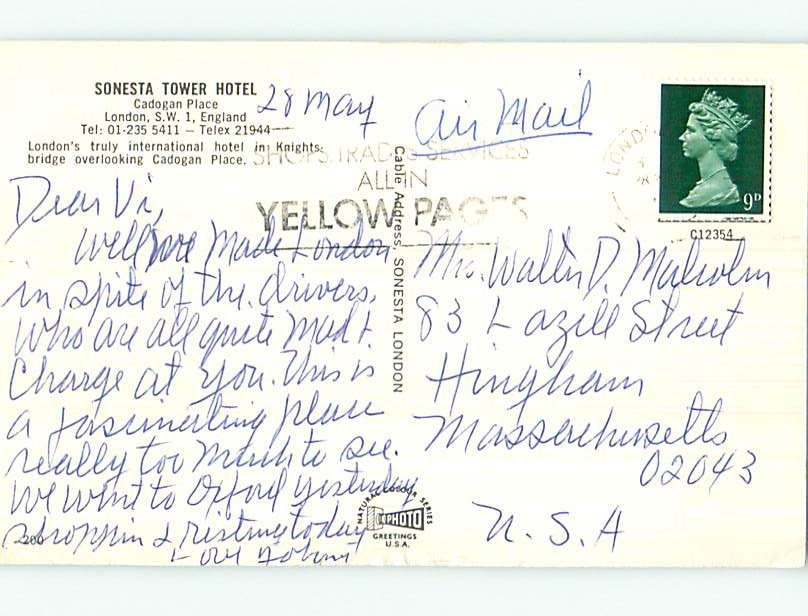 SONESTA TOWER HOTEL
Cadogan Place
London, S.W. 1, England
Tel: 01-235 5411 — Telex 21944
London's truly international hotel in Knights-
bridge overlooking Cadogan Place.
28 May
Air Mail
SHOPS TRADES SERVICES
ALL IN
YELLOW PAGES
LONDON
9P
C12354
Dear Vi,
Well we made London
in spite of the drivers,
who are all quite mad &
charge at you. This is
a fascinating place
really too much to see.
We went to Oxford yesterday
shoppin & resting today
Love
Cable Address, SONESTA LONDON
Mrs. Walter D. Malcolm
83 Lazell Street
Hingham
Massachusetts
02043
U.S.A
NATURAL COLOUR SERIES
PHOTO
GREETINGS
U.S.A.
200